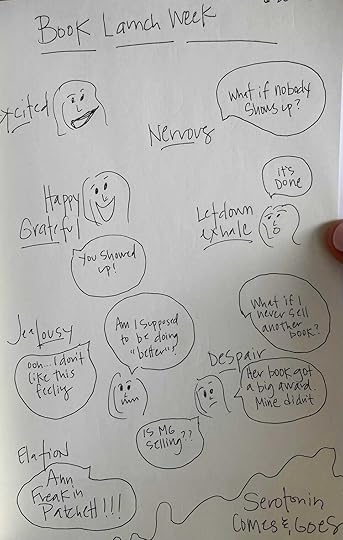 Book Launch Week
xcited
Nervous
What if nobody
shows up?
Happy
Grateful
You showed
up!
Letdown
exhale
it's
Done
Jealousy
ooh...I don't
like this
feeling
Am I supposed
to be doing
"better"?
What if I
never sell
another
book?
Despair
Her book got
a big award.
Mine didn't
Is MG
selling??
Elation
Ann
Freakin
Patchett!!!
Serotonin
Comes & Goes